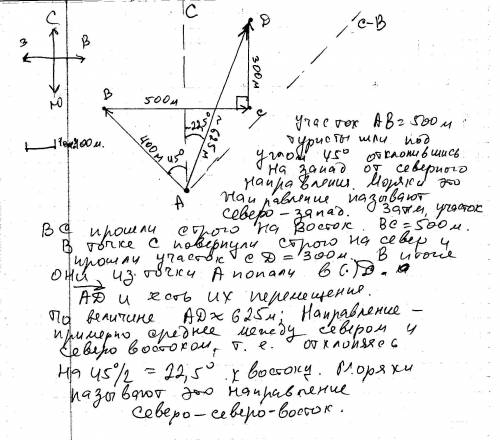 С
З
В
Ю
1см=100м.
С
D
С-В
B
500м
C
300м
22,5°
≈625м
400м
45°
A
участок АВ=500м
туристы шли под
углом 45° отклонившись
на запад от северного
направления. Моряки это
направление называют
северо-запад. Затем, участок
ВС прошли строго на Восток. ВС=500м.
В точке С повернули строго на север и
прошли участок СD=300м. В итоге
они из точки А попали в т. D.
AD и есть их перемещение.
По величине AD≈625м; Направление-
примерно среднее между севером и
северо востоком, т.е. отклоняясь
на 45°/2=22,5° к востоку. Моряки
называют это направление
северо-северо-восток.